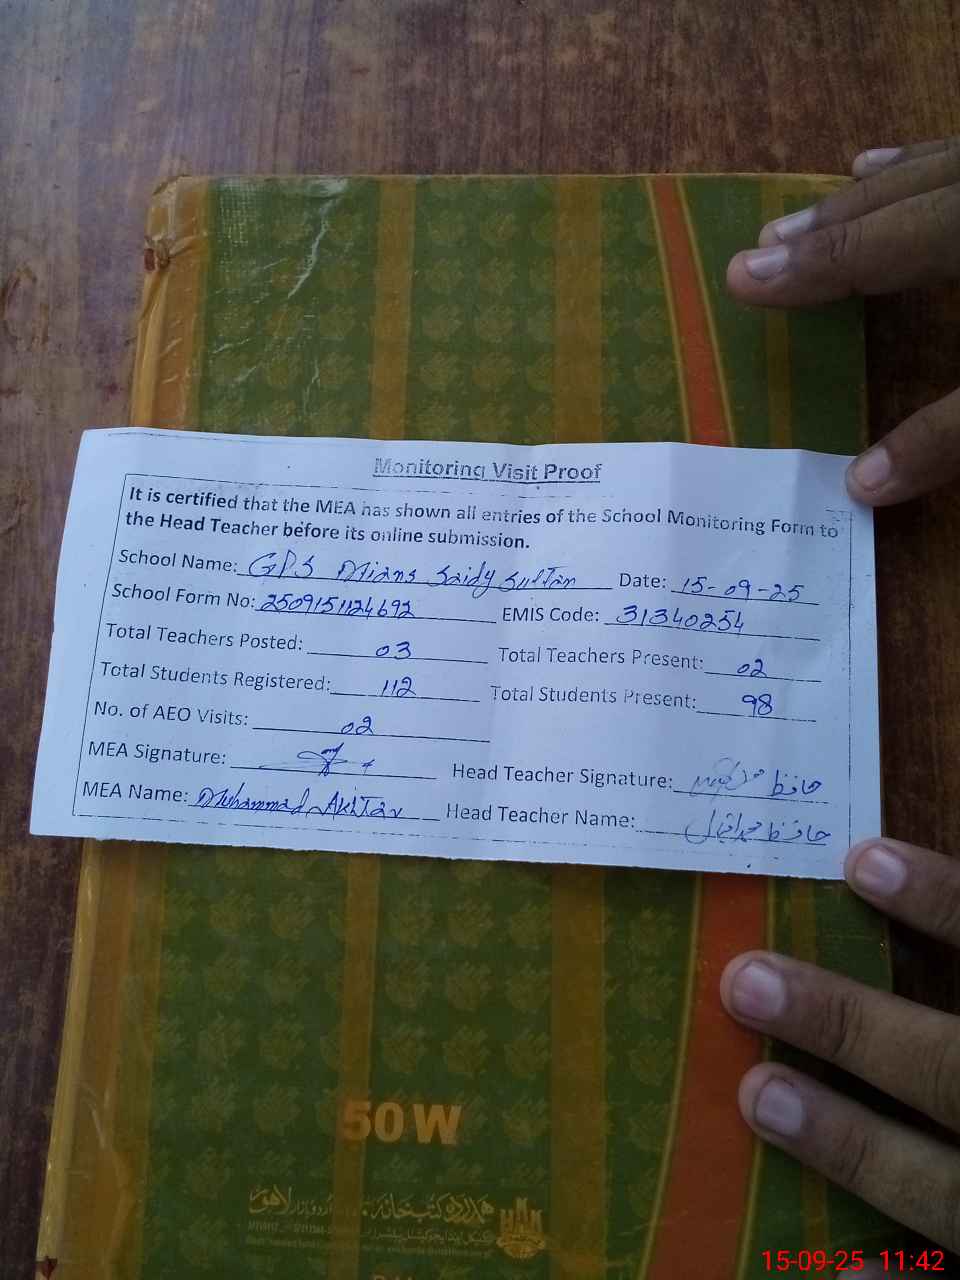 Monitoring Visit Proof
It is certified that the MEA has shown all entries of the School Monitoring Form to
the Head Teacher before its online submission.
School Name: GPS Mians Saidy Sultan Date: 15-09-25
School Form No: 2509151124692 EMIS Code: 31340254
Total Teachers Posted: 03 Total Teachers Present: 02
Total Students Registered: 112 Total Students Present: 98
No. of AEO Visits: 02
MEA Signature: Head Teacher Signature: حافظ محمد اقبال
MEA Name: Muhammad Akhtar Head Teacher Name: حافظ محمد اقبال
50 W
ہمدرد کتب خانہ اردو بازار لاہور
HKK
15-09-25 11:42